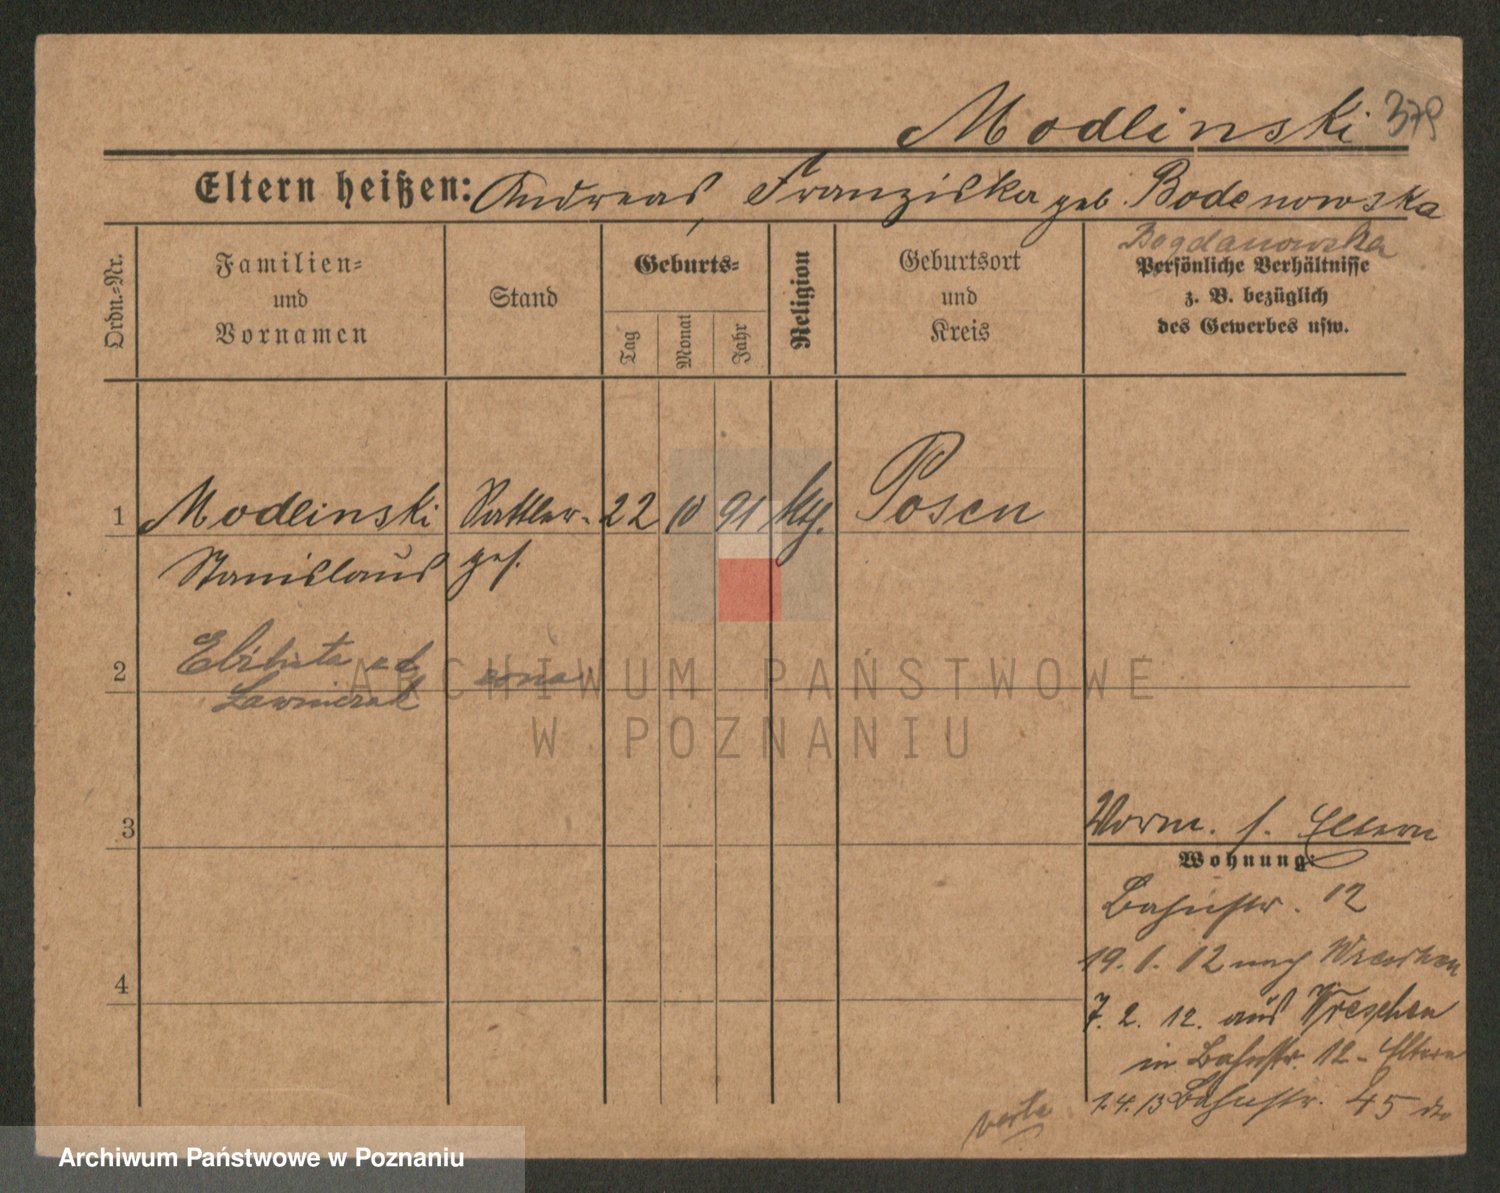 Modlinski 379
Eltern heißen: Andreas, Franziska geb. Bodenowska
Bogdanowska
Ordn.-Nr.
Familien-
und
Vornamen
Stand
Geburts-
Tag
Monat
Jahr
Religion
Geburtsort
und
Kreis
Persönliche Verhältnisse
z. B. bezüglich
des Gewerbes usw.
1 Modlinski Sattler- 22 10 91 kth. Posen
Stanislaus ges.
2 Elżbieta od
Ławniczak żona
3
4
Vorm. s. Eltern
Wohnung:
Bahnstr. 12
19. 1. 12 nach Wreschen
7. 2. 12. aus Wreschen
in Bahnstr. 12 - Eltern
1.4.13 Bahnstr. 45 dto
verte
ARCHIWUM PAŃSTWOWE
W POZNANIU
Archiwum Państwowe w Poznaniu